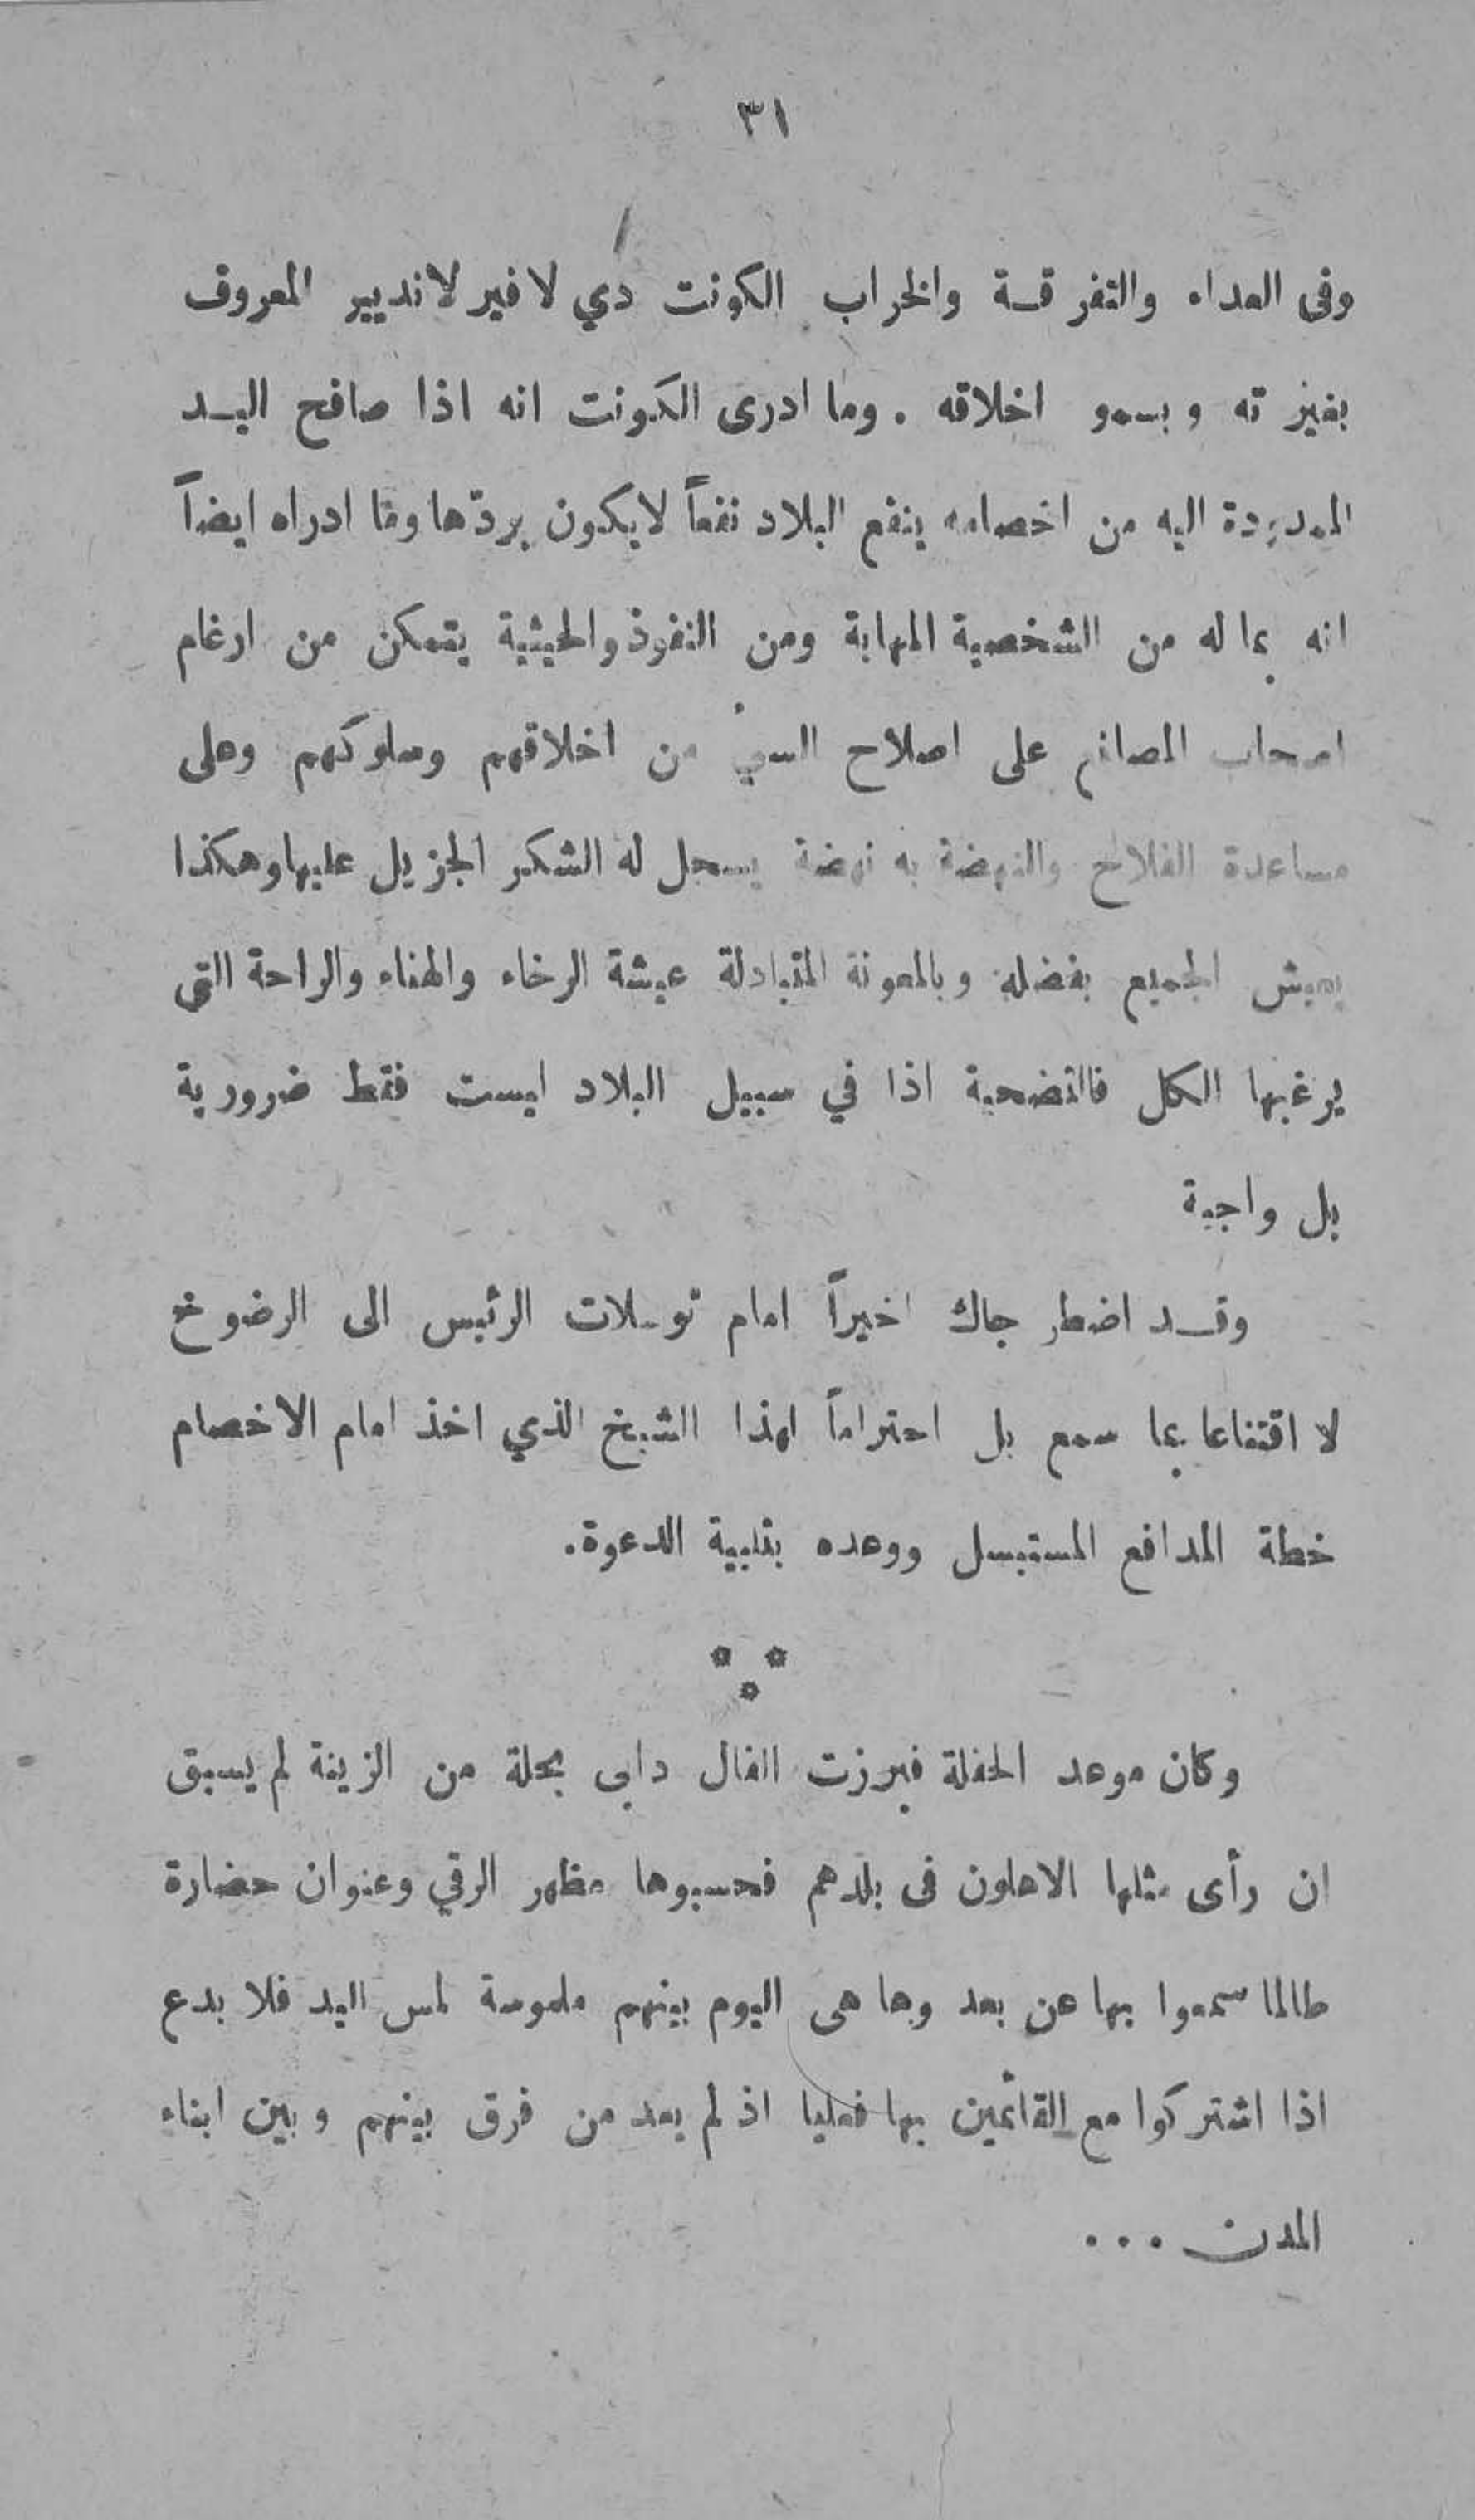 ٣١
وفى العداء والتفرقة والخراب الكونت دي لافير لاندبير المعروف
بغيرته وبسمو اخلاقه . وما ادرى الكونت انه اذا صافح اليد
الممدودة اليه من اخصامه ينفع البلاد نفعاً لا يكون بردّها وما ادراه ايضاً
انه بما له من الشخصية المهابة ومن النفوذ والحيثية يتمكن من ارغام
اصحاب المصانع على اصلاح السيئ من اخلاقهم وسلوكهم وعلى
مساعدة الفلاح والنهضة به نهضة يسجل له الشكر الجزيل عليها وهكذا
يعيش الجميع بفضله وبالمعونة المتبادلة عيشة الرخاء والهناء والراحة التى
يرغبها الكل فالتضحية اذا في سبيل البلاد ليست فقط ضرورية
بل واجبة
وقد اضطر جاك اخيراً امام توسلات الرئيس الى الرضوخ
لا اقتناعا بما سمع بل احتراماً لهذا الشيخ الذي اخذ امام الاخصام
خطة المدافع المستبسل ووعده بتلبية الدعوة.
* *
*
وكان موعد الحفلة فبرزت الفال دابى بحلة من الزينة لم يسبق
ان رأى مثلها الاهلون فى بلدهم فحسبوها مظهر الرقي وعنوان حضارة
طالما سمعوا بها عن بعد وها هى اليوم بينهم ملموسة لمس اليد فلا بدع
اذا اشتركوا مع القائمين بها فعليا اذ لم يعد من فرق بينهم وبين ابناء
المدن ...